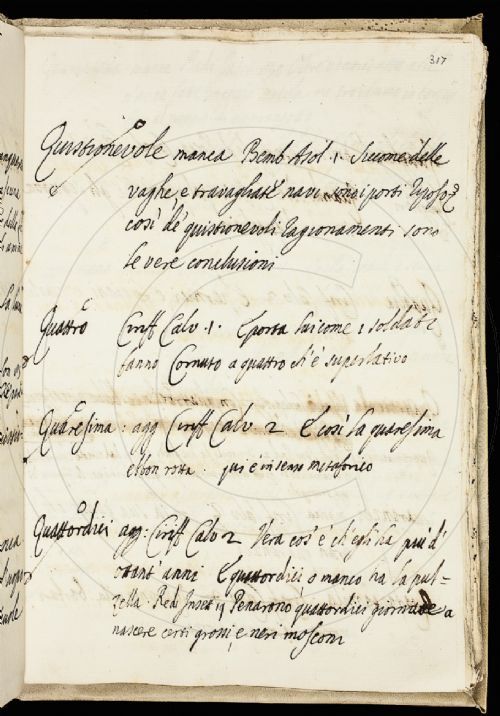 317
Quistionevole manca Bemb Asol · 1 · Siccome delle
vaghe e travagliate navi sono i porti riposo
così de quistionevoli ragionamenti sono
le vere conclusioni
Quattro Ciriff Calv · 1 · E porta siccome i soldati
fanno Cornuto a quattro ch'è superlativo
Quaresima : agg Ciriff Calv 2 E così la quaresima
e ben rotta · qui è in senso metaforico
Quattordici agg : Ciriff Calv 2 Vera cos' è ch' egli ha più d'
ottant' anni E quattordici o manco ha la pul=
zella · Redi Inset 19 Penarono quattordici giornate a
nascere certi grossi, e neri mosconi